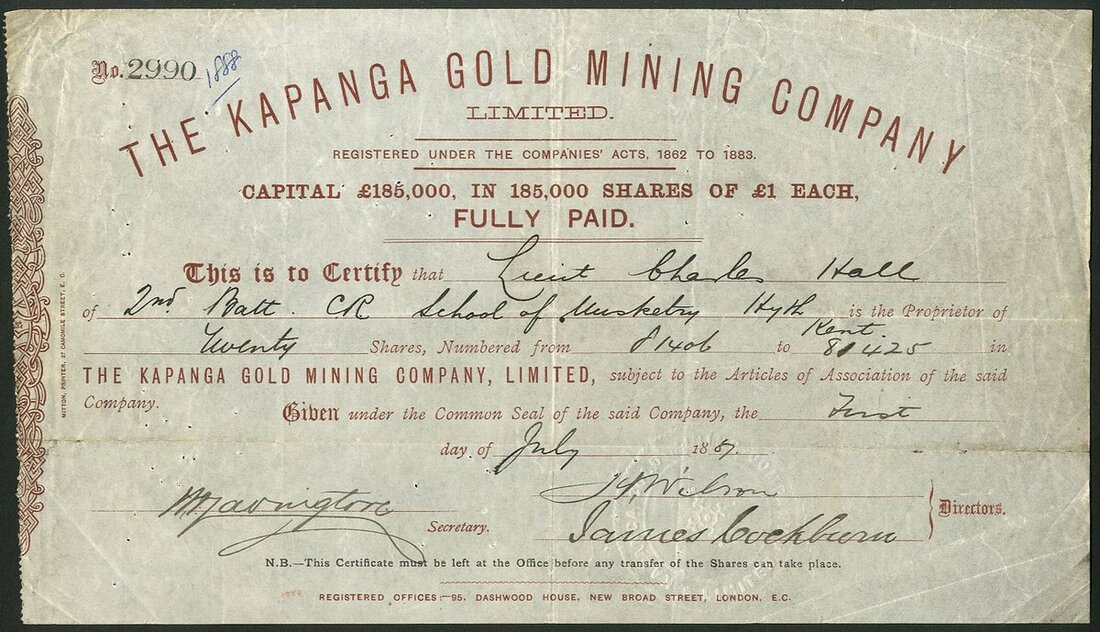 No. 2990 1888
THE KAPANGA GOLD MINING COMPANY
LIMITED.
REGISTERED UNDER THE COMPANIES' ACTS, 1862 TO 1883.
CAPITAL £185,000, IN 185,000 SHARES OF £1 EACH,
FULLY PAID.
This is to Certify that Lieut Charles Hall
of 2nd Batt. CR School of Musketry Hyth is the Proprietor of
Kent.
Twenty Shares, Numbered from 81406 to 81425 in
THE KAPANGA GOLD MINING COMPANY, LIMITED, subject to the Articles of Association of the said
Company.
Given under the Common Seal of the said Company, the First
day of July 1887.
J. Wilson
James Cockburn
Secretary.
Directors.
N.B.—This Certificate must be left at the Office before any transfer of the Shares can take place.
REGISTERED OFFICES:—95, DASHWOOD HOUSE, NEW BROAD STREET, LONDON, E.C.
MITTON, PRINTER, 27 CAMOMILE STREET, E.C.